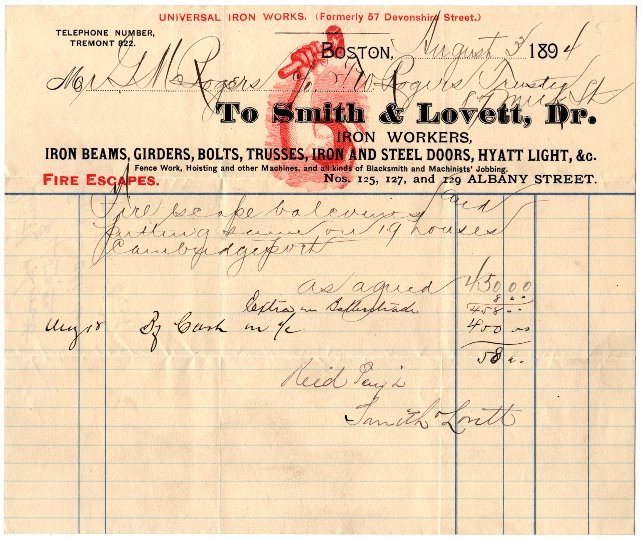 UNIVERSAL IRON WORKS. (Formerly 57 Devonshire Street.)
TELEPHONE NUMBER,
TREMONT 822.
BOSTON, August 3 1894
Mr G M Rogers c/o Rogers Trustee
To Smith & Lovett, Dr.
IRON WORKERS,
IRON BEAMS, GIRDERS, BOLTS, TRUSSES, IRON AND STEEL DOORS, HYATT LIGHT, &c.
Fence Work, Hoisting and other Machines, and all kinds of Blacksmith and Machinists' Jobbing.
FIRE ESCAPES.
Nos. 125, 127, and 129 ALBANY STREET.
Fire escape balconies and
putting same on 19 houses
Cambridgeport
as agreed 450 00
Extra on 8 00
458 00
Aug 18 By Cash on a/c 400 00
58 00
Smith & Lovett